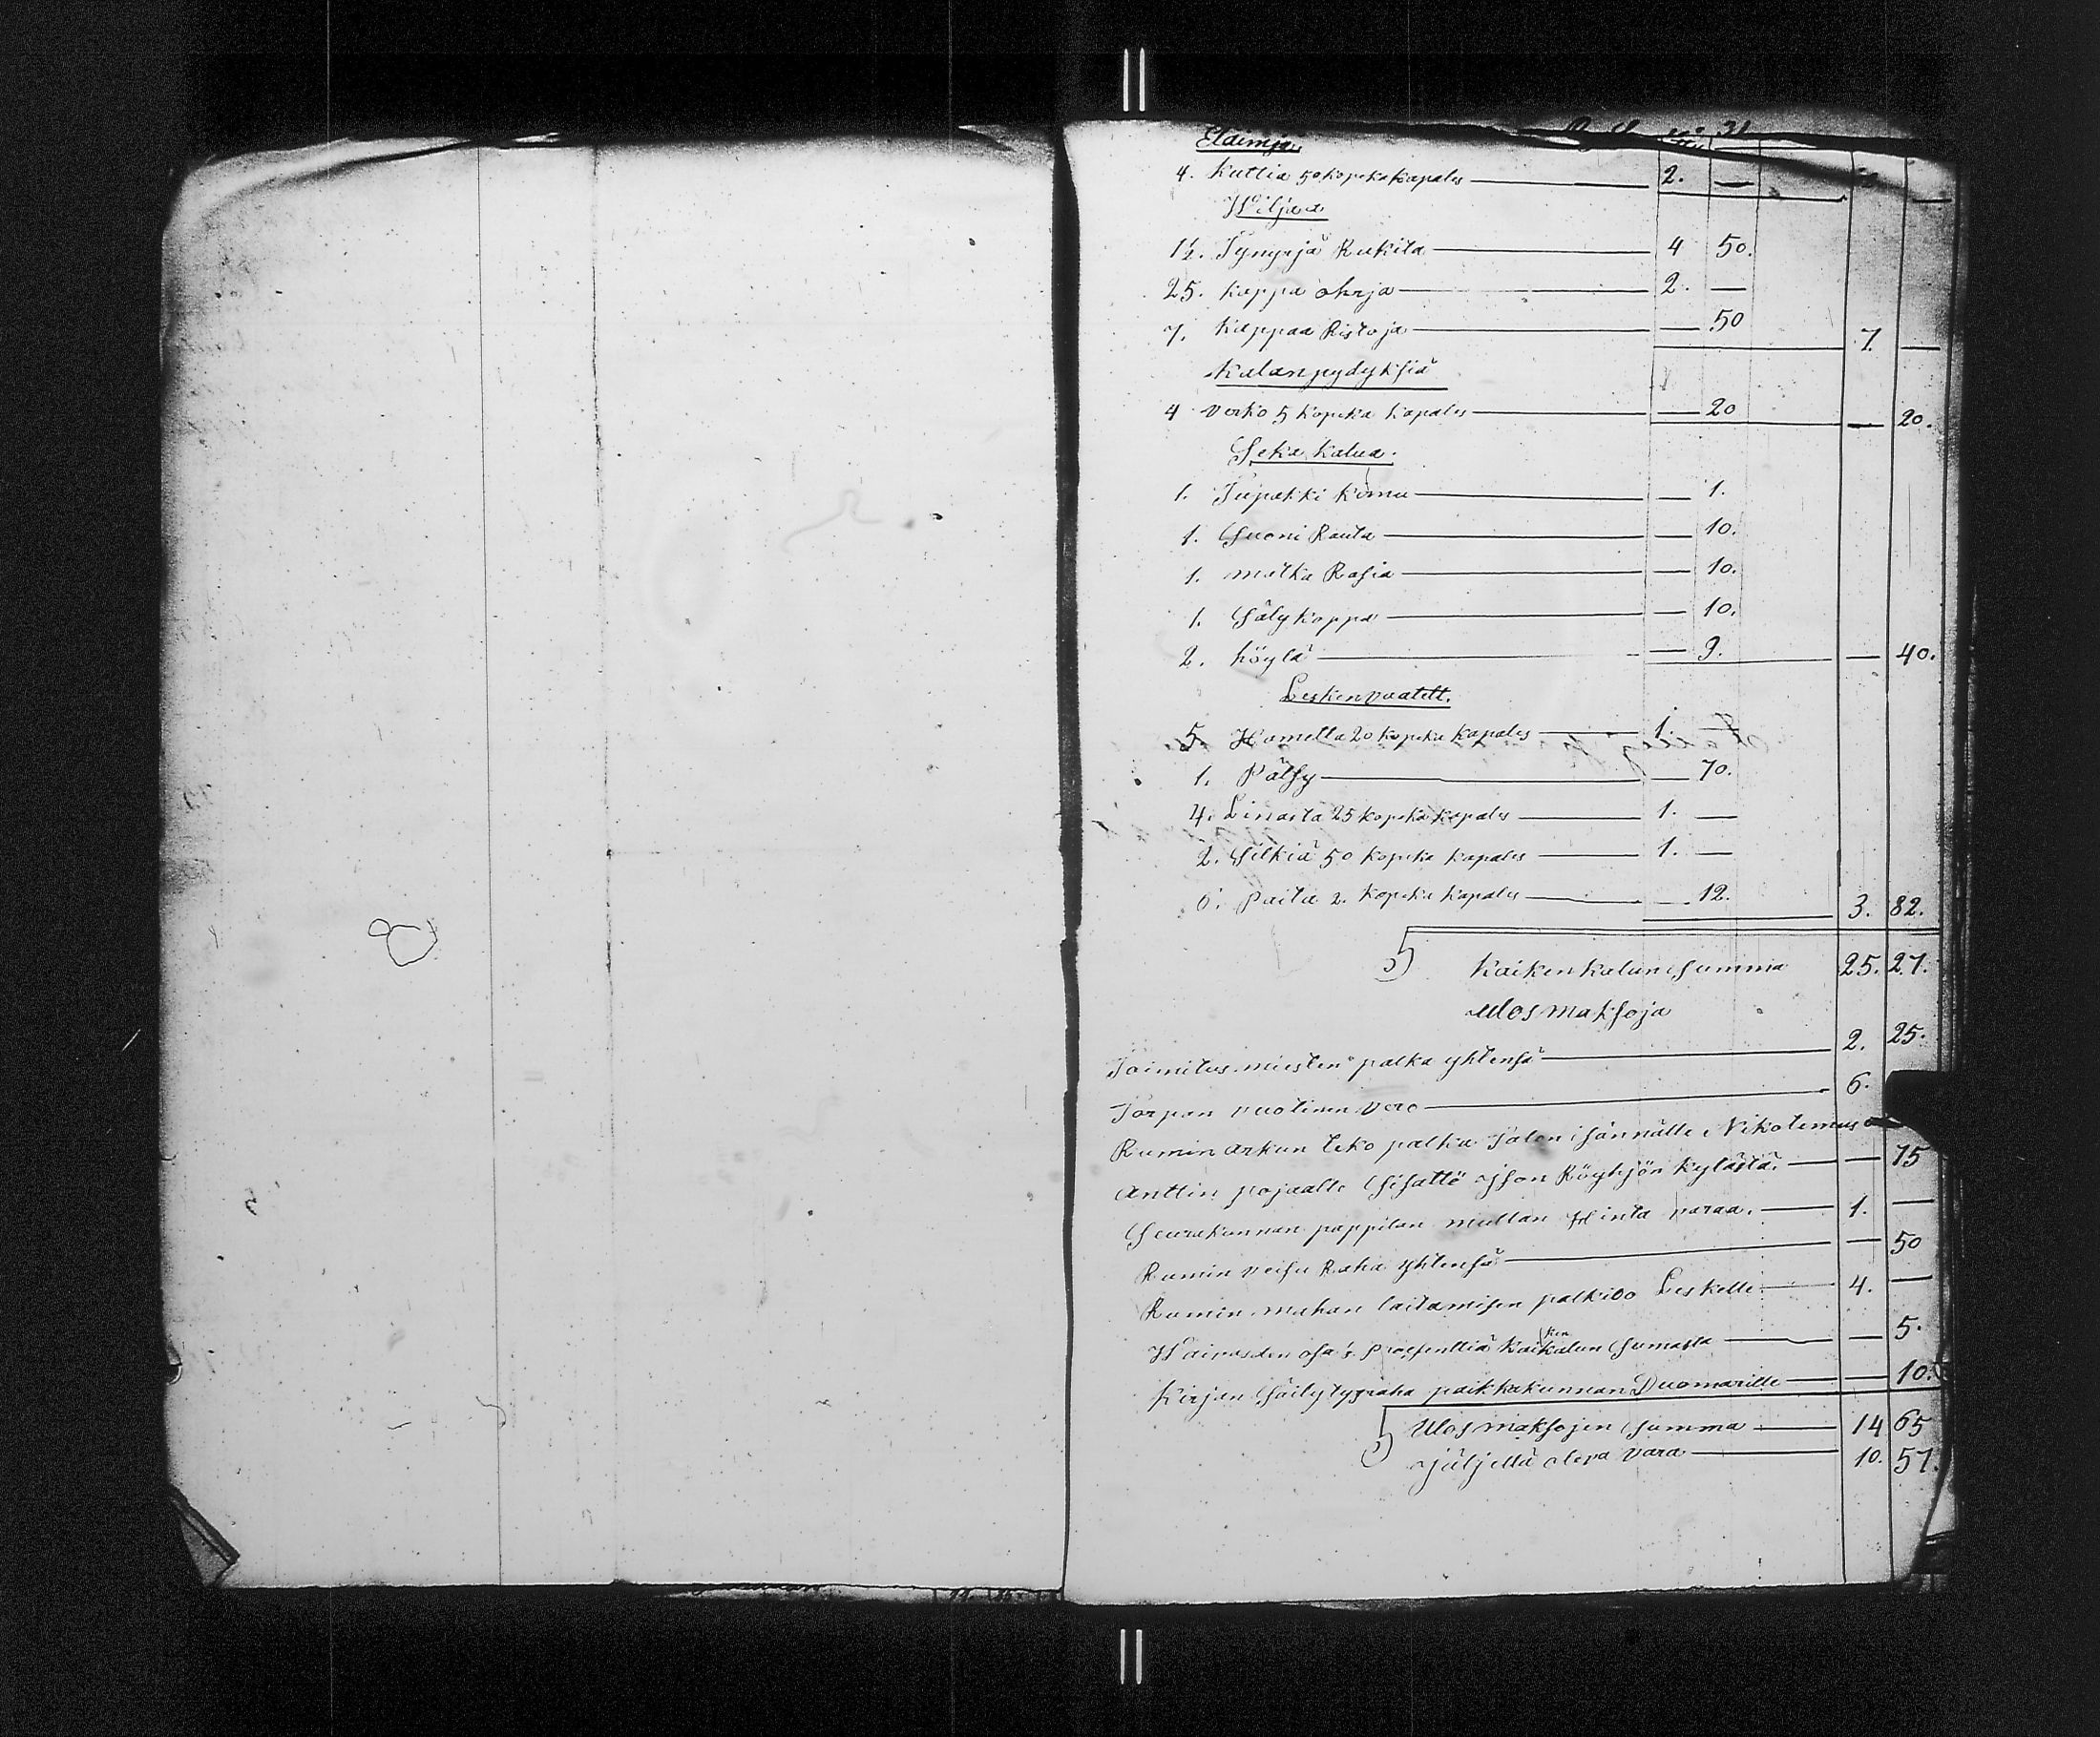 Eläimjä
4. kuttia 50 kopeka kapales 2. —
Wiljaa
1½. Tynyrjä Rukita 4 50.
25. kappa ohrja 2. —
7. kappaa Ristoja — 50 7. —
Kalanpydyksiä
4 verko 5 kopeka kapales — 20 — 20.
Seka kalua.
1. Tupakki komu — 1.
1. Suoni Rauta — 10.
1. matka Rasia — 10.
1. Säly koppa — 10.
2. höylä — 9. — 40.
Leskenvaatett.
5. Hamella 20 kopeka kapales 1. —
1. Pälsy — 70.
4. Linaita 25 kopeka kapales 1. —
2. Silkiä 50 kopeka kapales 1. —
6. paita 2. kopeka kapales — 12. 3. 82.
Kaikenkalun summa 25. 27.
Ulos maksoja
Toimitus miesten palka yhtensä 2. 25.
Torpan vuotinen vero 6.
Rumin arkun teko palka Talon isännälle Nikotemus
Anttin pojaalle Sisättö Ison Röyhjön kylästä. — 75
Seurakunnan pappilan mullan Hinta varaa. 1. —
Rumin veisu Raha yhtensä — 50
Rumin mahan laitamisen palkiDo Leskelle 4. —
Waivasden osa ⅛ prosenttiä kaiken kalun Sumasta — 5.
Kirjan Säilytysraha paikkakunnan Duomarille — 10.
Ulos maksojen summa 14 65
Jäljellä oleva vara 10. 57.